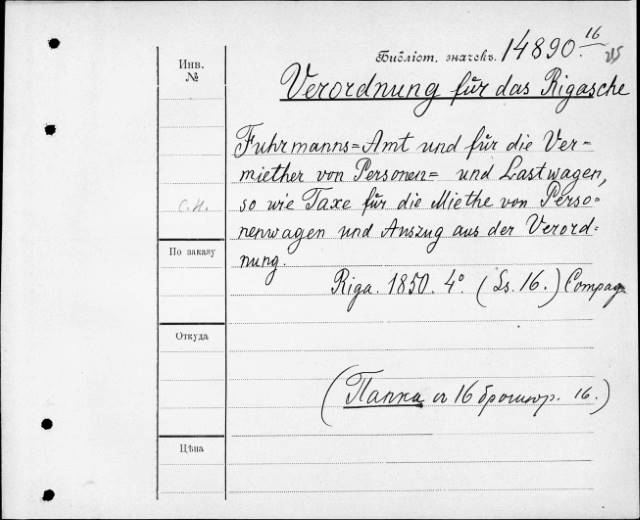 Библіот. значекъ. 14890. 16
Инв.
№
Verordnung für das Rigasche
Fuhrmanns=Amt und für die Ver=
miether von Personen= und Lastwagen,
С.К.
so wie Taxe für die Miethe von Perso=
nenwagen und Auszug aus der Verord=
По заказу
nung.
Riga. 1850. 4° (Ss. 16.)
Откуда
(Папка съ 16 брошюр. 16.)
Цѣна